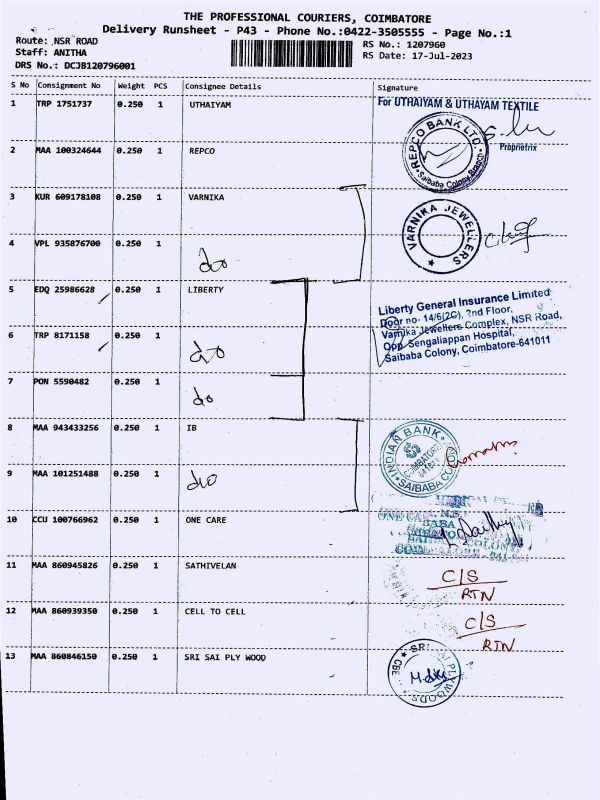 THE PROFESSIONAL COURIERS, COIMBATORE
Delivery Runsheet - P43 - Phone No.:0422-3505555 - Page No.:1
Route: NSR ROAD
RS No.: 1207960
Staff: ANITHA
RS Date: 17-Jul-2023
DRS No.: DCJB120796001
S No Consignment No Weight PCS Consignee Details Signature
1 TRP 1751737 0.250 1 UTHAIYAM
For UTHAIYAM & UTHAYAM TEXTILE
Proprietrix
2 MAA 100324644 0.250 1 REPCO
REPCO BANK LTD.
Saibaba Colony Branch
3 KUR 609178108 0.250 1 VARNIKA
VARNIKA JEWELLERS
4 VPL 935876700 0.250 1 do
5 EDQ 25986628 0.250 1 LIBERTY
Liberty General Insurance Limited
Door no- 14/6(2C), 2nd Floor,
Varnika Jewellers Complex, NSR Road,
Opp. Sengaliappan Hospital,
Saibaba Colony, Coimbatore-641011
6 TRP 8171158 0.250 1 do
7 PON 5590482 0.250 1 do
8 MAA 943433256 0.250 1 IB
INDIAN BANK
COIMBATORE
641011
SAIBABA COLONY
9 MAA 101251488 0.250 1 do
10 CCU 100766962 0.250 1 ONE CARE
11 MAA 860945826 0.250 1 SATHIVELAN
C/S
RTN
12 MAA 860939350 0.250 1 CELL TO CELL
C/S
RTN
13 MAA 860846150 0.250 1 SRI SAI PLY WOOD
SRI SAI PLYWOODS
CBE